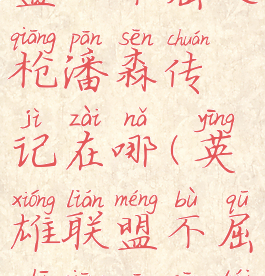 qiāng pān sēn chuán
枪潘森传
jì zài nǎ yīng
记在哪(英
xióng lián méng bù qū
雄联盟不屈